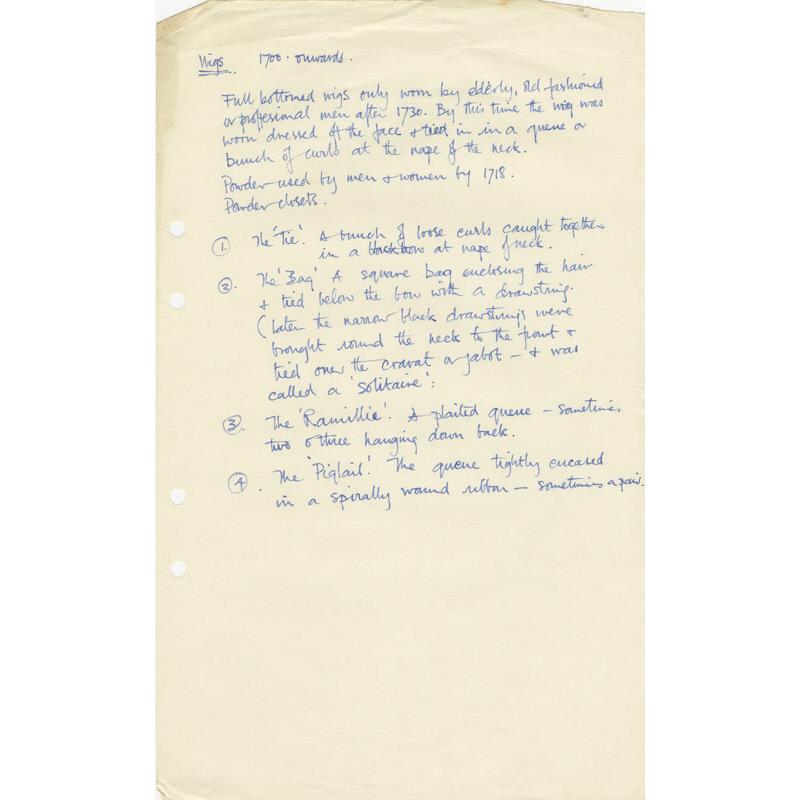 Wigs. 1700. onwards.
Full bottomed wigs only worn by elderly, old fashioned
or proffesional men after 1730. By this time the wig was
worn dressed off the face & tied in in a queue or
bunch of curls at the nape of the neck.
Powder used by men & women by 1718.
Powder closets.
1. The 'Tie'. A bunch of loose curls caught together
in a black bow at nape of neck.
2. The 'Bag' A square bag enclosing the hair
& tied below the bow with a drawstring.
(Later the narrow black drawstrings were
brought round the neck to the front &
tied over the cravat or jabot – & was
called a 'Solitaire':
3. The 'Ramillie'. A plaited queue – sometimes
two or three hanging down back.
4. The 'Pigtail'. The queue tightly encased
in a spirally wound ribbon – sometimes a pair.